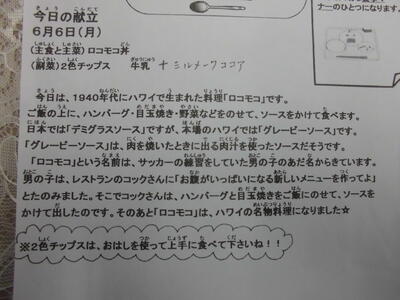 ナーのひとつになります。
今日の献立
6月6日(月)
(主食と主菜)ロコモコ丼
(副菜)2色チップス 牛乳 + ミルメークココア
今日は、1940年代にハワイで生まれた料理「ロコモコ」です。
ご飯の上に、ハンバーグ・目玉焼き・野菜などをのせて、ソースをかけて食べます。
日本では「デミグラスソース」ですが、本場のハワイでは「グレービーソース」です。
「グレービーソース」は、肉を焼いたときに出る肉汁を使ったソースだそうです。
「ロコモコ」という名前は、サッカーの練習をしていた男の子のあだ名からきています。
男の子は、レストランのコックさんに「お腹がいっぱいになる新しいメニューを作ってよ」
とたのみました。そこでコックさんは、ハンバーグと目玉焼きをご飯にのせて、ソースを
かけて出したのです。そのあと「ロコモコ」は、ハワイの名物料理になりました☆
※2色チップスは、おはしを使って上手に食べて下さいね!!